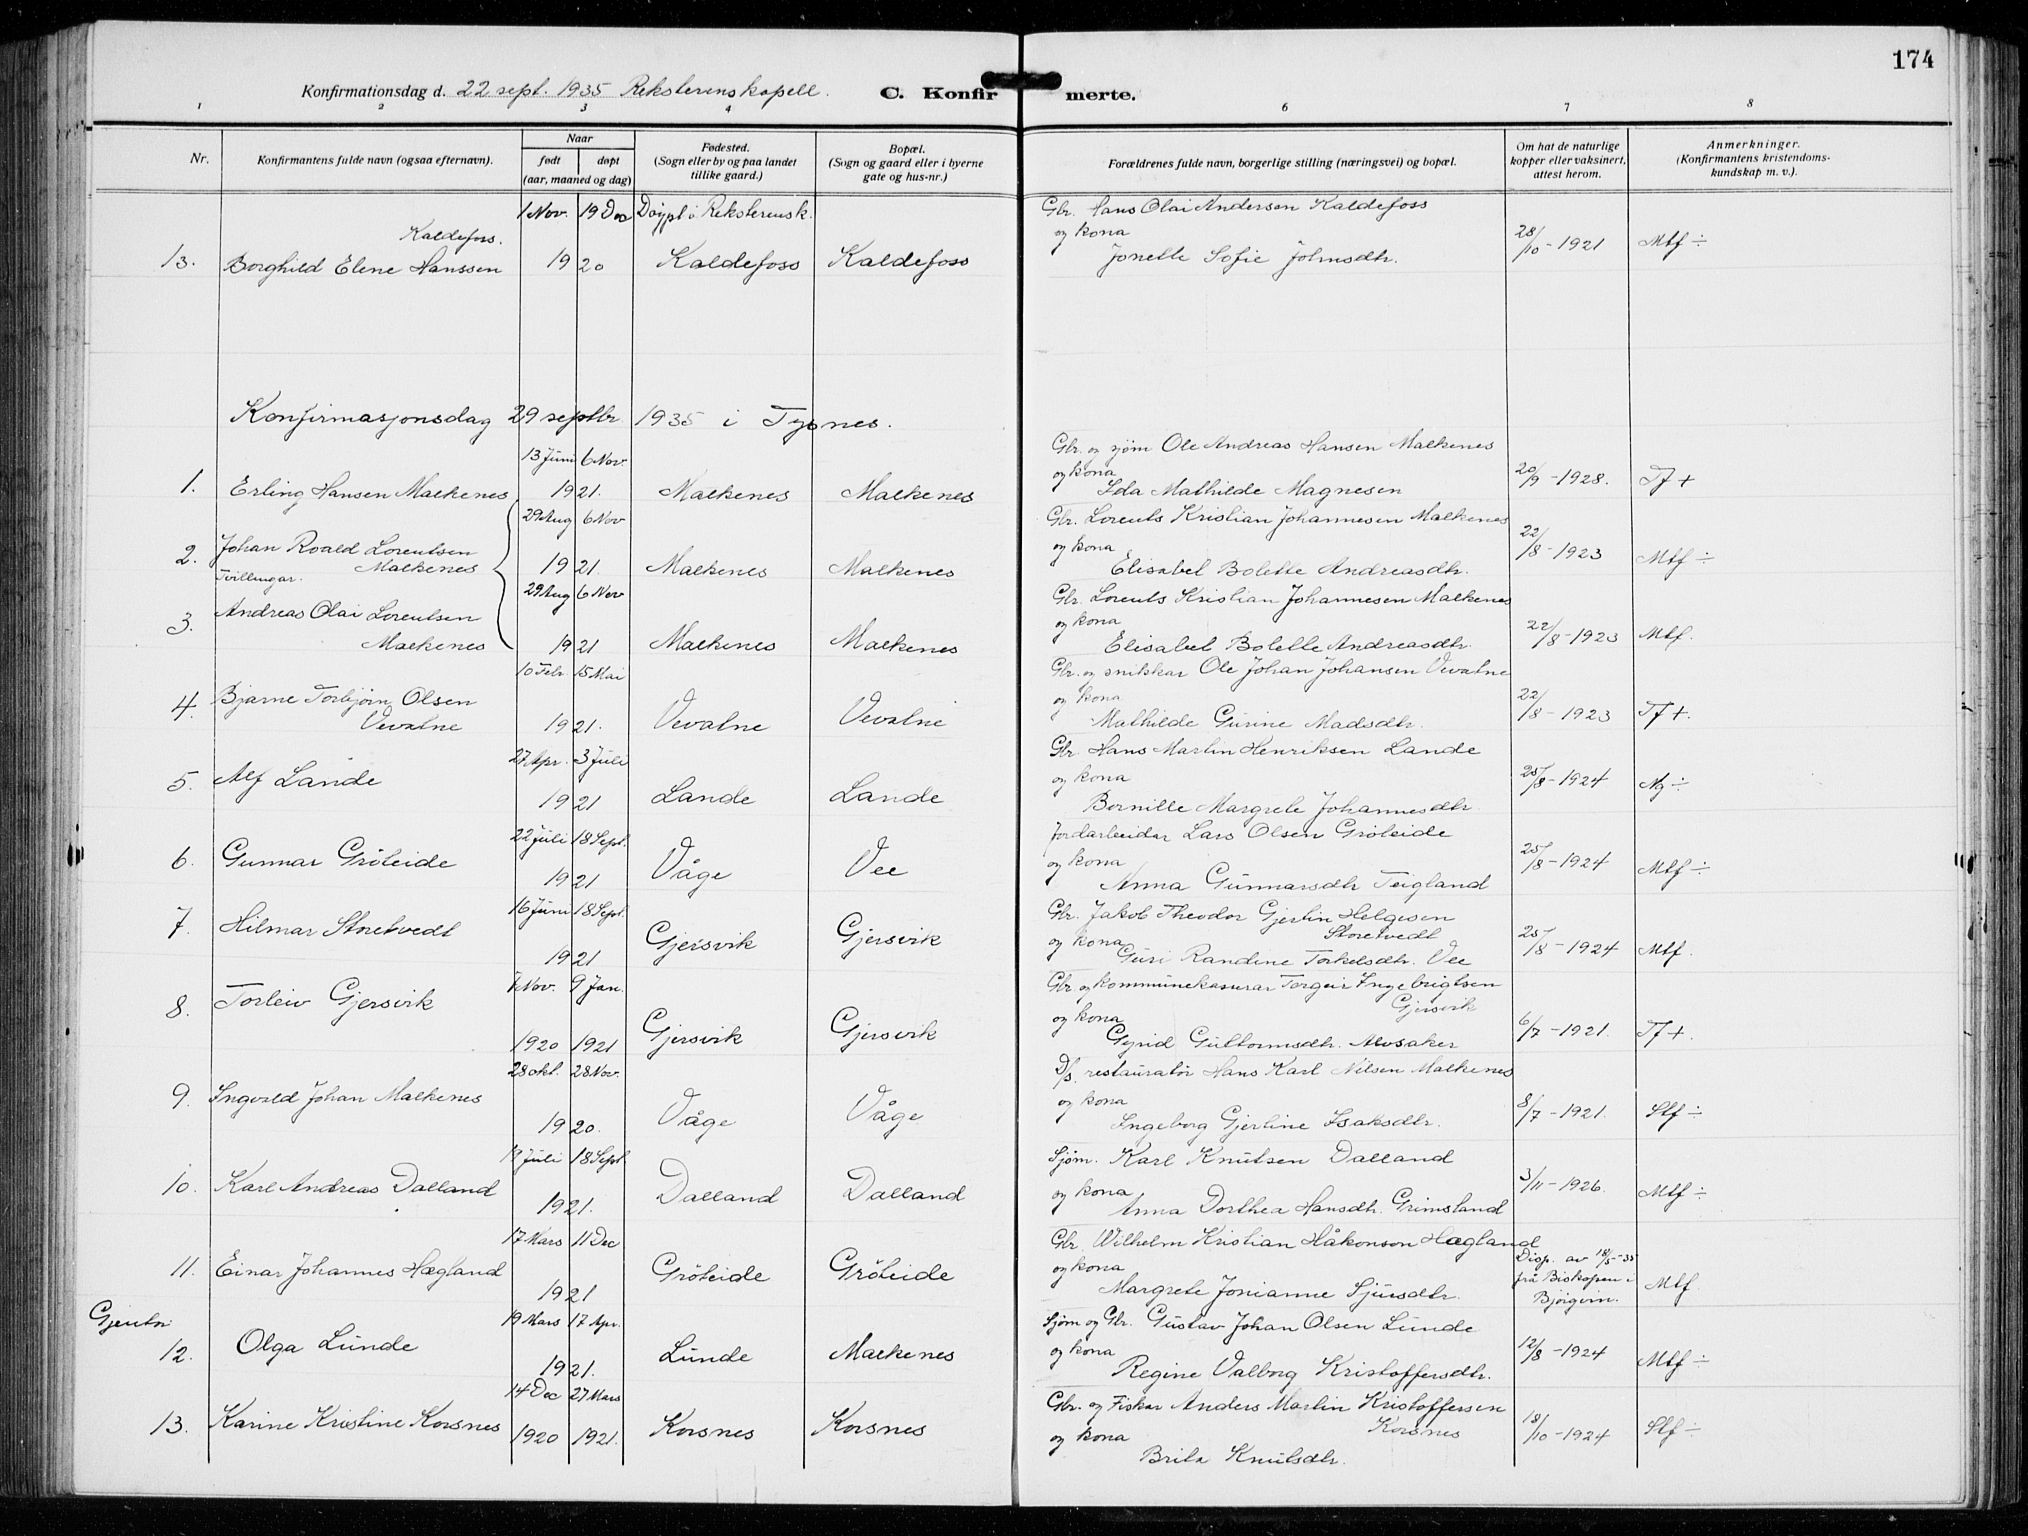 174
Konfirmationsdag d. 22 sept. 1935 Reksterenskapell. C. Konfirmerte.
1 2 3 4 6 7 8
Nr.
Konfirmantens fulde navn (ogsaa efternavn).
Naar
født døpt
(aar, maaned og dag)
Fødested.
(Sogn eller by og paa landet
tillike gaard.)
Bopæl.
(Sogn og gaard eller i byerne
gate og hus-nr.)
Forældrenes fulde navn, borgerlige stilling (næringsvei) og bopæl.
Om hat de naturlige
kopper eller vaksinert,
attest herom.
Anmerkninger.
(Konfirmantens kristendoms-
kundskap m. v.).
1 Nov. 19 Des Døypt i Reksterensk. Gbr. Hans Olai Andersen Kaldefoss
Kaldefoss. og kona 28/10 - 1921 Mtf ÷
13. Borghild Elene Hanssen 1920 Kaldefoss Kaldefoss Jonette Sofie Johnsdtr.
Konfirmasjonsdag 29 septbr 1935 i Tysnes.
13 Juni 6 Nov. Gbr. og sjøm Ole Andreas Hansen Malkenes
og kona 20/9 - 1928. Tf +
1. Erling Hansen Malkenes 1921. Malkenes Malkenes Ida Mathilde Magnesen
29 Aug 6 Nov Gbr. Lorents Kristian Johannesen Malkenes
2. Johan Roald Lorentsen og kona 22/8 - 1923 Mtf ÷
Tvillingar. Malkenes 1921. Malkenes Malkenes Elisabet Bolette Andreasdtr.
29 Aug 6 Nov Gbr. Lorents Kristian Johannesen Malkenes
3. Andreas Olai Lorentsen og kona 22/8 - 1923 Mtf.
Malkenes 1921 Malkenes Malkenes Elisabet Bolette Andreasdtr.
10 Febr. 15 Mai Gbr. og snikkar Ole Johan Johansen Vevatne
4. Bjarne Torbjørn Olsen og kona 22/8 - 1923 Tf +.
Vevatne 1921. Vevatne Vevatne Mathilde Gurine Madsdtr.
27 Apr. 3 Juli Gbr. Hans Martin Henriksen Lande
5. Alf Lande og kona 25/8 - 1924 Ng ÷
1921 Lande Lande Bornille Margrete Johannesdtr
22 Juli 18 Sept. Jordarbeidar Lars Olsen Gröteide
6. Gunnar Gröteide og kona 25/8 - 1924 Mtf ÷
1921 Våge Vee Anna Gunnarsdtr Teigland
16 Juni 18 Sept. Gbr. Jakob Theodor Gjertin Helgesen
7. Hilmar Storetvedt og kona Storetvedt 25/8 - 1924 Mtf.
1921 Gjersvik Gjersvik Guri Randine Torkelsdtr. Vee
7 Nov. 9 Jan. Gbr og kommunekaserar Torgeir Ingebrigtsen
8. Torleiv Gjersvik og kona Gjersvik 6/7 - 1921. Tf +.
1920 1921 Gjersvik Gjersvik Gyrid Guttormsdtr. Alvsaker
28 okt. 28 Nov. D/s. restauratör Hans Karl Nilsen Malkenes
9. Ingvald Johan Malkenes og kona 8/7 - 1921 Stf ÷
1920. Våge Våge Ingeborg Gjertine Isaksdtr.
19 Juli 18 Sept Sjøm. Karl Knutsen Dalland
10. Karl Andreas Dalland og kona 3/11 - 1926. Mtf ÷
1921. Dalland Dalland Anna Dorthea Hansdtr. Grimsland
17 Mars 11 Dec Gbr. Wilhelm Kristian Håkonson Hægland
11. Einar Johannes Hægland og kona Disp. av 18/5-35 frå Biskopen i Bjørgvin. Mtf
1921 Gröteide Gröteide Margrete Jonianne Sjursdtr.
Gjentor 19 Mars 17 Apr. Sjøm og Gbr. Gustav Johan Olsen Lunde
12. Olga Lunde og kona 12/8 - 1924 Mtf ÷
1921. Lunde Malkenes Regine Valborg Kristoffersdtr.
14 Dec 27 Mars Gbr. og Fiskar Anders Martin Kristoffersen
13. Karine Kristine Korsnes og kona Korsnes 18/10 - 1924 Stf ÷
1920 1921. Korsnes Korsnes Brita Knutsdtr.